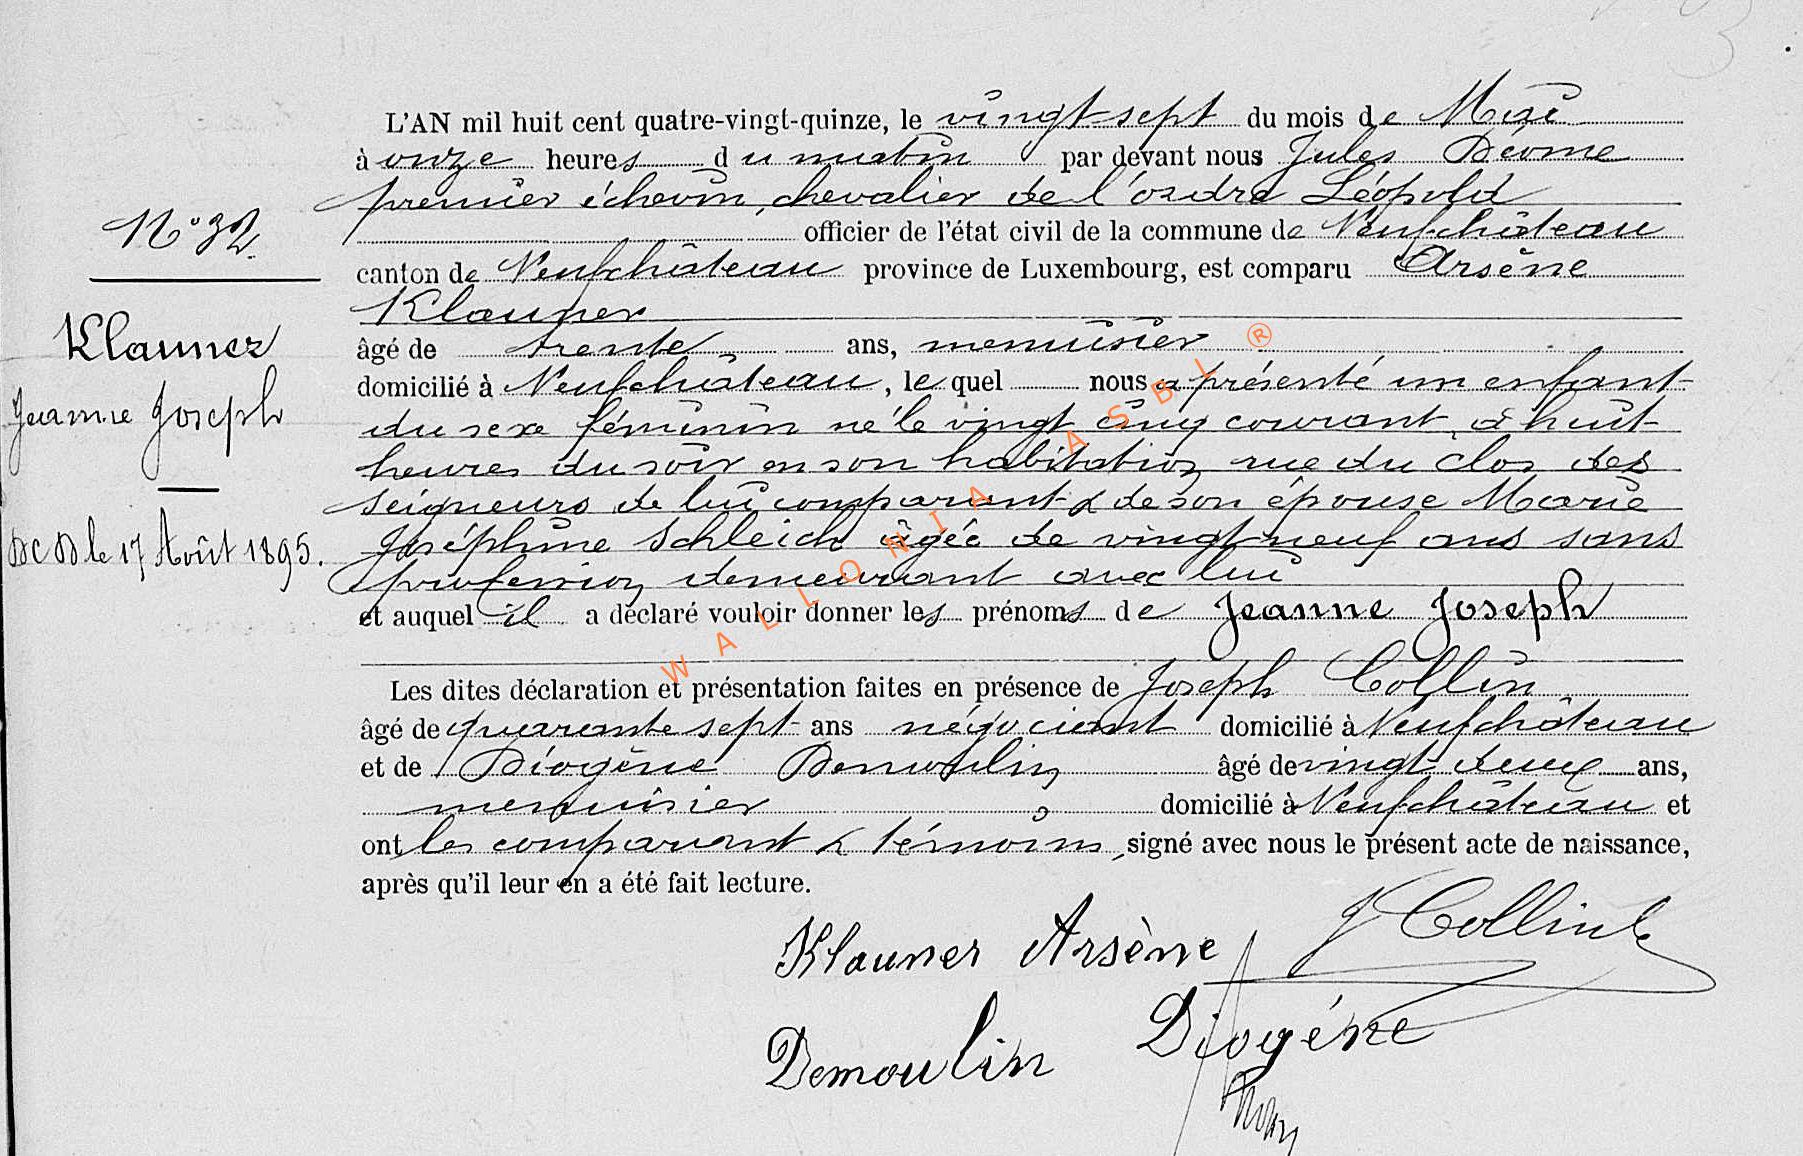 L'AN mil huit cent quatre-vingt-quinze, le vingt-sept du mois de Mai
à onze heures du matin par devant nous Jules
premier échevin, chevalier de l'ordre Léopold
N° 32
officier de l'état civil de la commune de Neufchâteau
canton de Neufchâteau province de Luxembourg, est comparu Arsène
Klauner
Klauner
âgé de trente ans, menuisier
domicilié à Neufchâteau, lequel nous a présenté un enfant
Jeanne Joseph
du sexe féminin né le vingt cinq courant, à huit
heures du soir en son habitation rue du clos des
seigneurs de lui comparant & de son épouse Marie
Joséphine Schleich âgée de vingt neuf ans sans
DCD le 17 Août 1895.
profession demeurant avec lui
et auquel il a déclaré vouloir donner les prénoms de Jeanne Joseph
Les dites déclaration et présentation faites en présence de Joseph Collin
âgé de quarante sept ans négociant domicilié à Neufchâteau
et de Diogène Demoulin âgé de vingt-deux ans,
menuisier domicilié à Neufchâteau et
ont les comparant & témoins, signé avec nous le présent acte de naissance,
après qu'il leur en a été fait lecture.
Klauner Arsène J Collin
Demoulin Diogène
WALLONIA ASBL ®